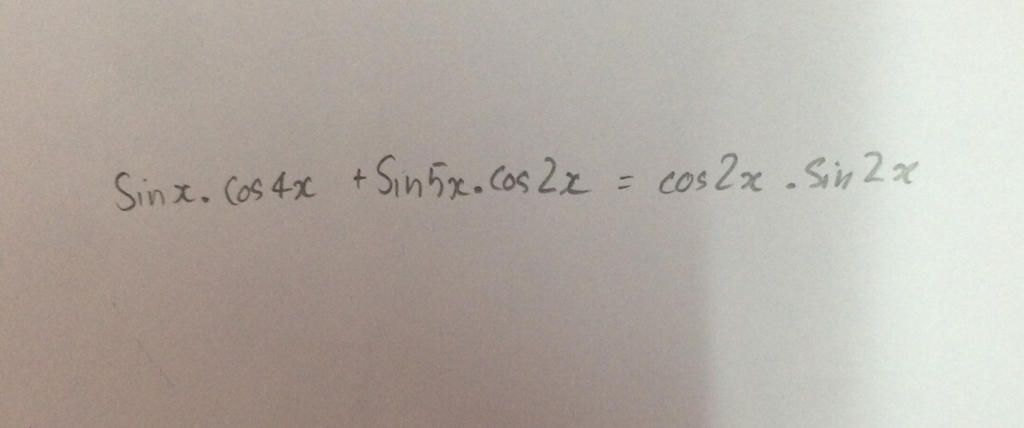 Sinx. Cos4x + Sin5x.Cos2x = cos2x . Sin2x